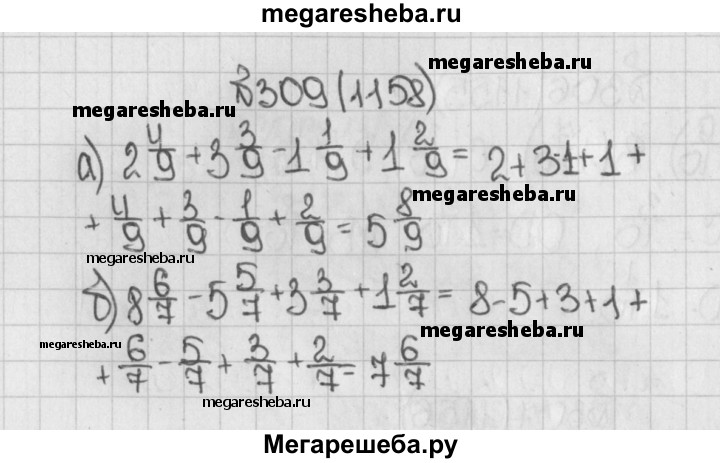 megaresheba.ru
№309(1158)
megaresheba.ru
а) 2 4/9 + 3 3/9 - 1 1/9 + 1 2/9 = 2+3-1+1+
megaresheba.ru
+ 4/9 + 3/9 - 1/9 + 2/9 = 5 8/9
megaresheba.ru
б) 8 6/7 - 5 5/7 + 3 3/7 + 1 2/7 = 8-5+3+1+
megaresheba.ru
megaresheba.ru
+ 6/7 - 5/7 + 3/7 + 2/7 = 7 6/7
megaresheba.ru
Мегарешеба.ру